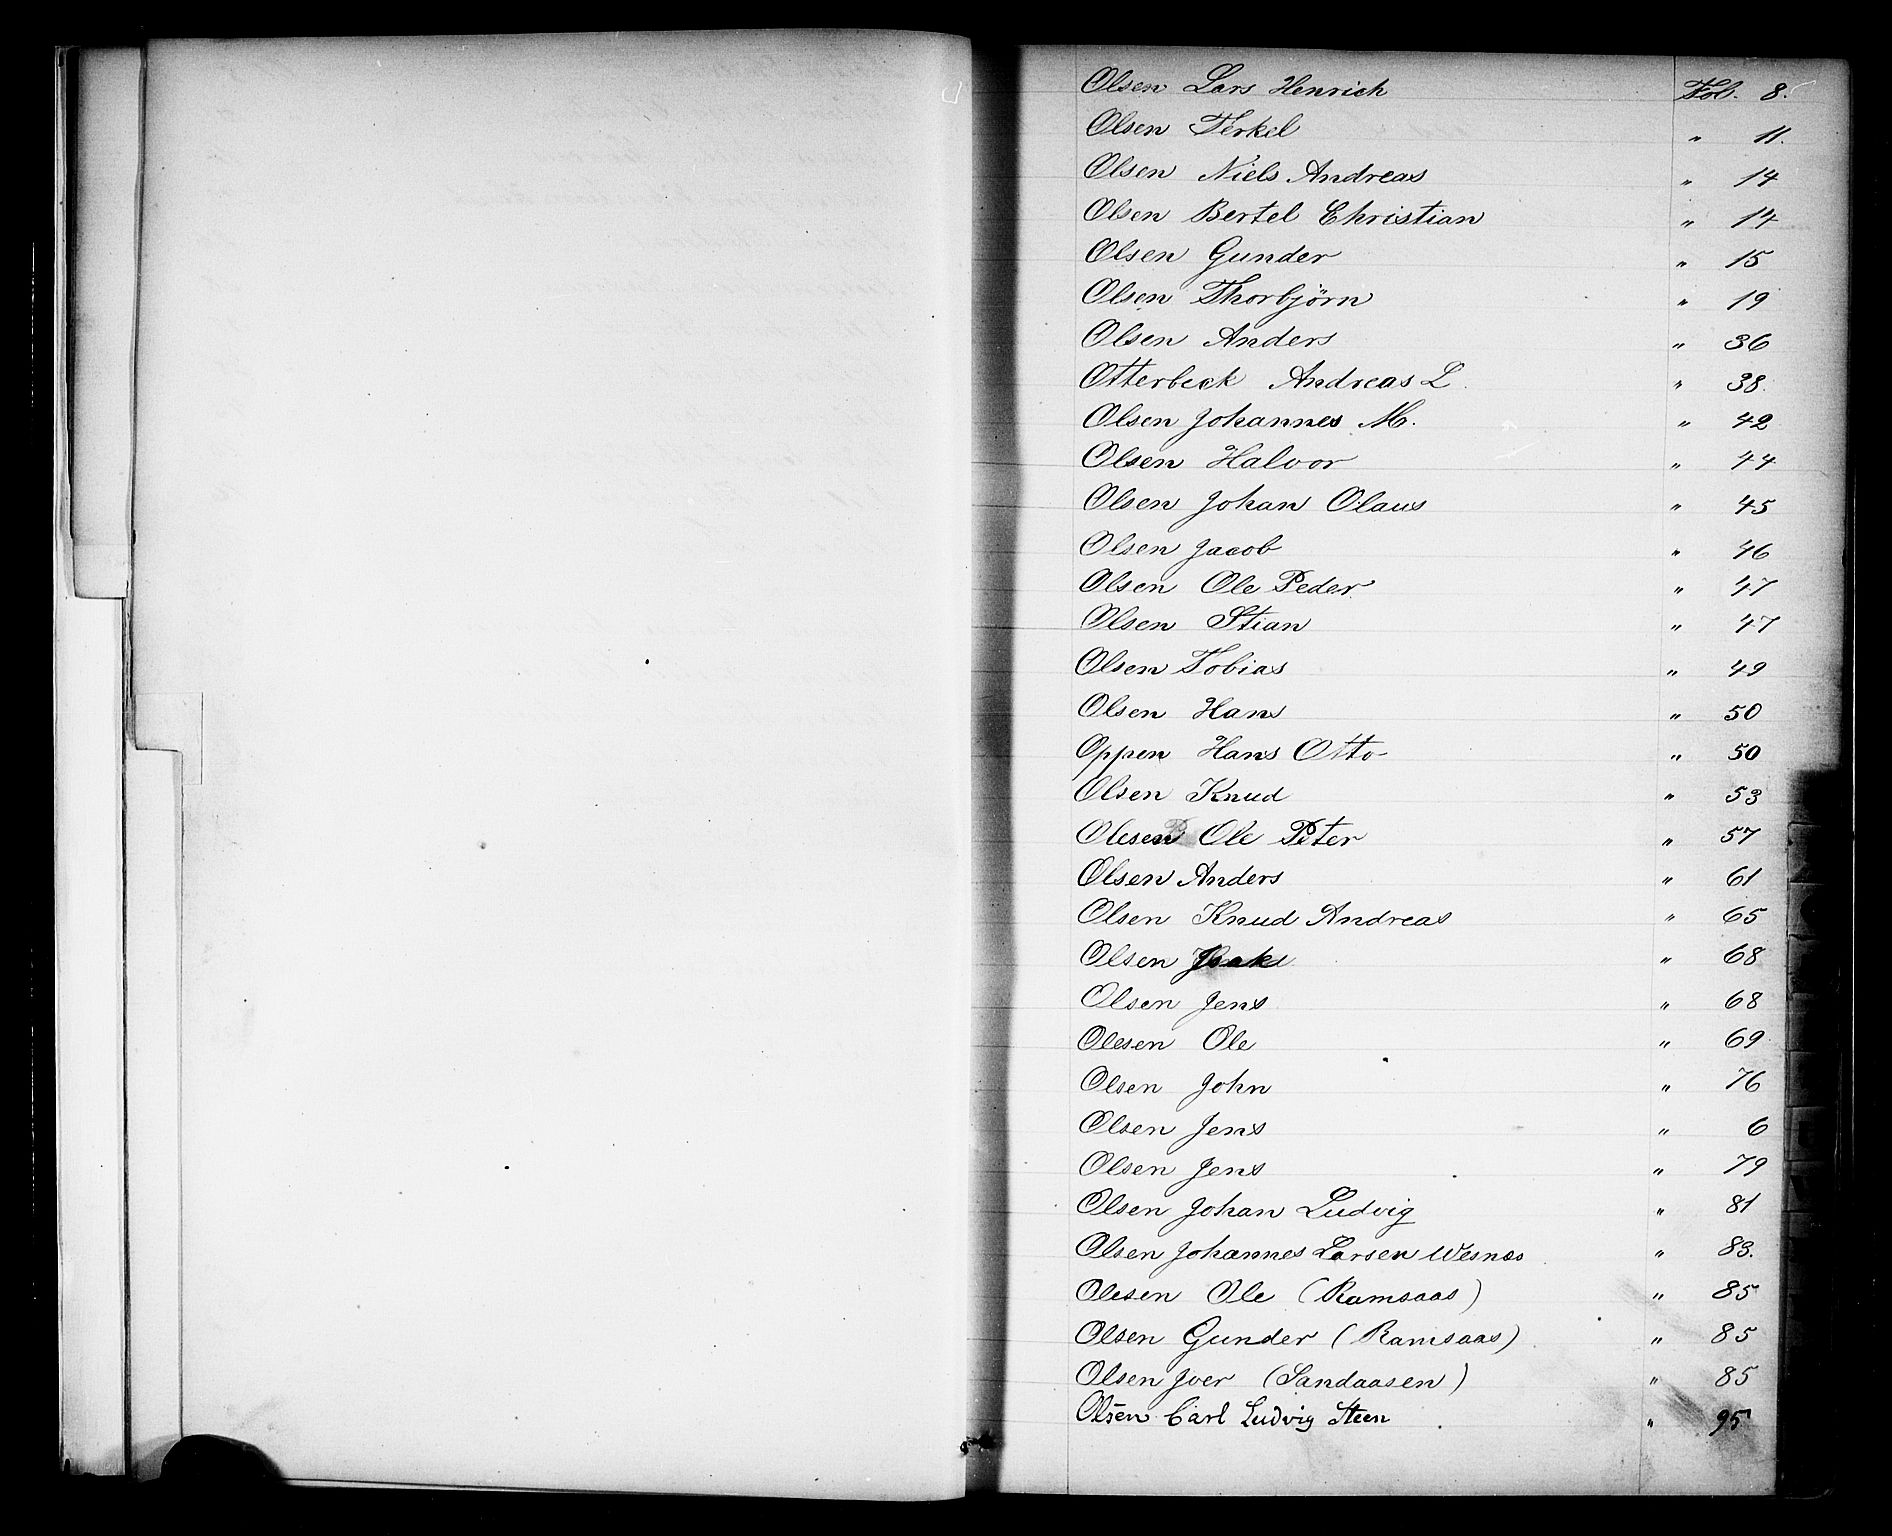 Olsen Lars Henrich Fol. 8.
Olsen Terkel " 11.
Olsen Niels Andreas " 14
Olsen Bertel Christian " 14
Olsen Gunder " 15
Olsen Thorbjörn " 19
Olsen Anders " 36
Otterbeck Andreas L. " 38.
Olsen Johannes M. " 42
Olsen Halvor " 44
Olsen Johan Olaus " 45
Olsen Jacob " 46
Olsen Ole Peder " 47
Olsen Stian " 47
Olsen Tobias " 49
Olsen Hans " 50
Oppen Hans Otto " 50
Olsen Knud " 53
Olesen Ole Peter " 57
Olsen Anders " 61
Olsen Knud Andreas " 65
Olsen Isak " 68
Olsen Jens " 68
Olesen Ole " 69
Olsen John " 76
Olsen Jens " 6
Olsen Jens " 79
Olsen Johan Ludvig " 81
Olsen Johannes Larsen Wesnes " 83.
Olesen Ole (Ramsaas) " 85
Olsen Gunder (Ramsaas) " 85
Olsen Iver (Sandaasen) " 85
Olsen Carl Ludvig Steen " 95